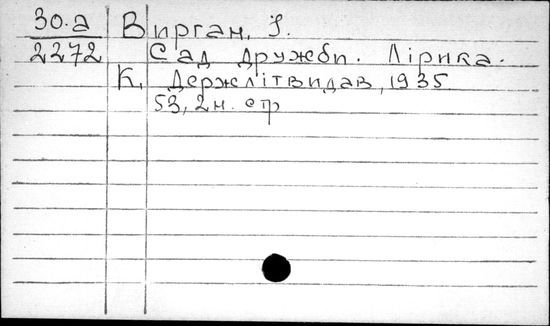 30.а Вирган, І.
2272 Сад дружби. Лірика.
К. Держлітвидав, 1935
53, 2 н. стр